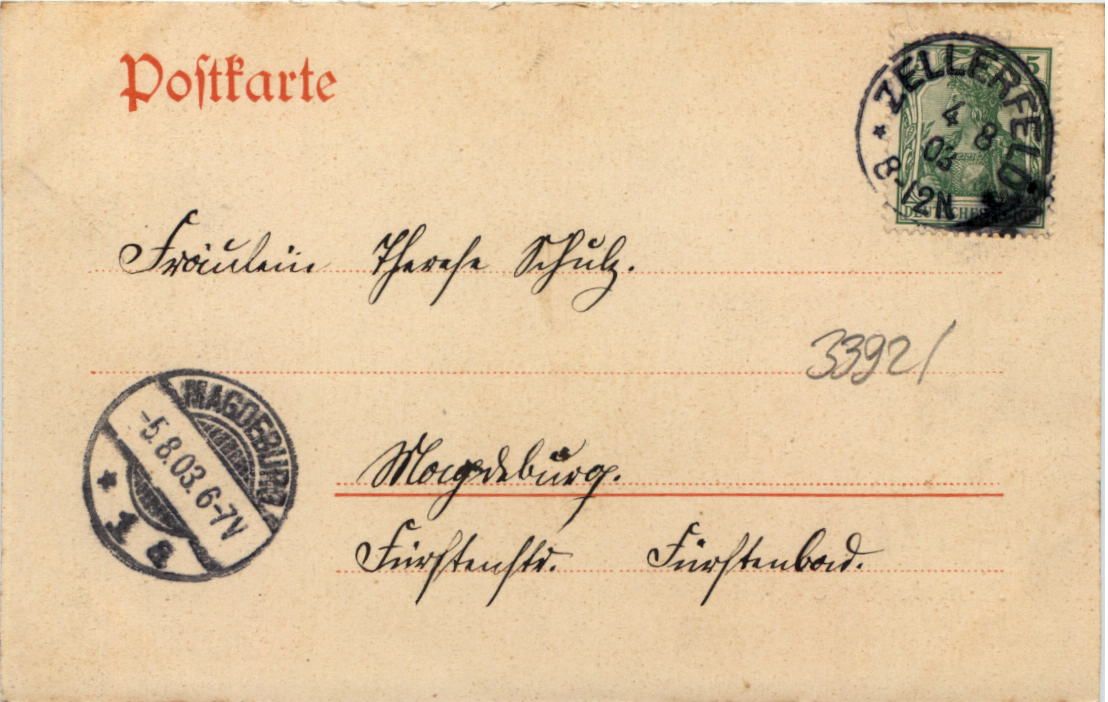 Postkarte
5
ZELLERFELD
4 8
03
8-12N
DEUTSCHES REICH
Fräulein Therese Schulz.
33921
MAGDEBURG
-5.8.03. 6-7V
1 a
Magdeburg.
Fürstenstr. Fürstenbad.